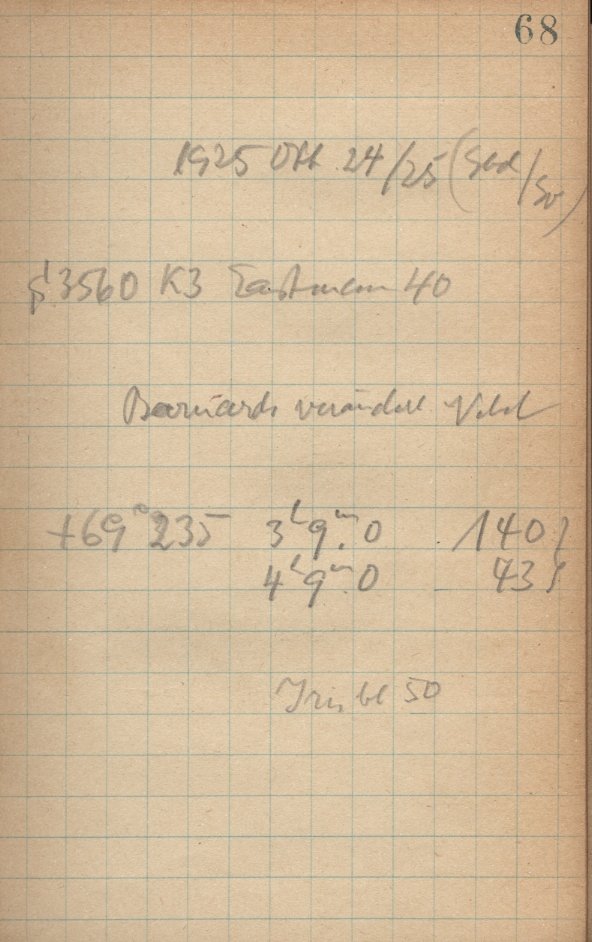 68
1925 Okt 24/25 (
3560 K3 Eastman 40
Barnards veränderl Nebel
+69° 235 3ʰ9ᵐ.0 140
4ʰ9ᵐ.0 43
Irisbl 50